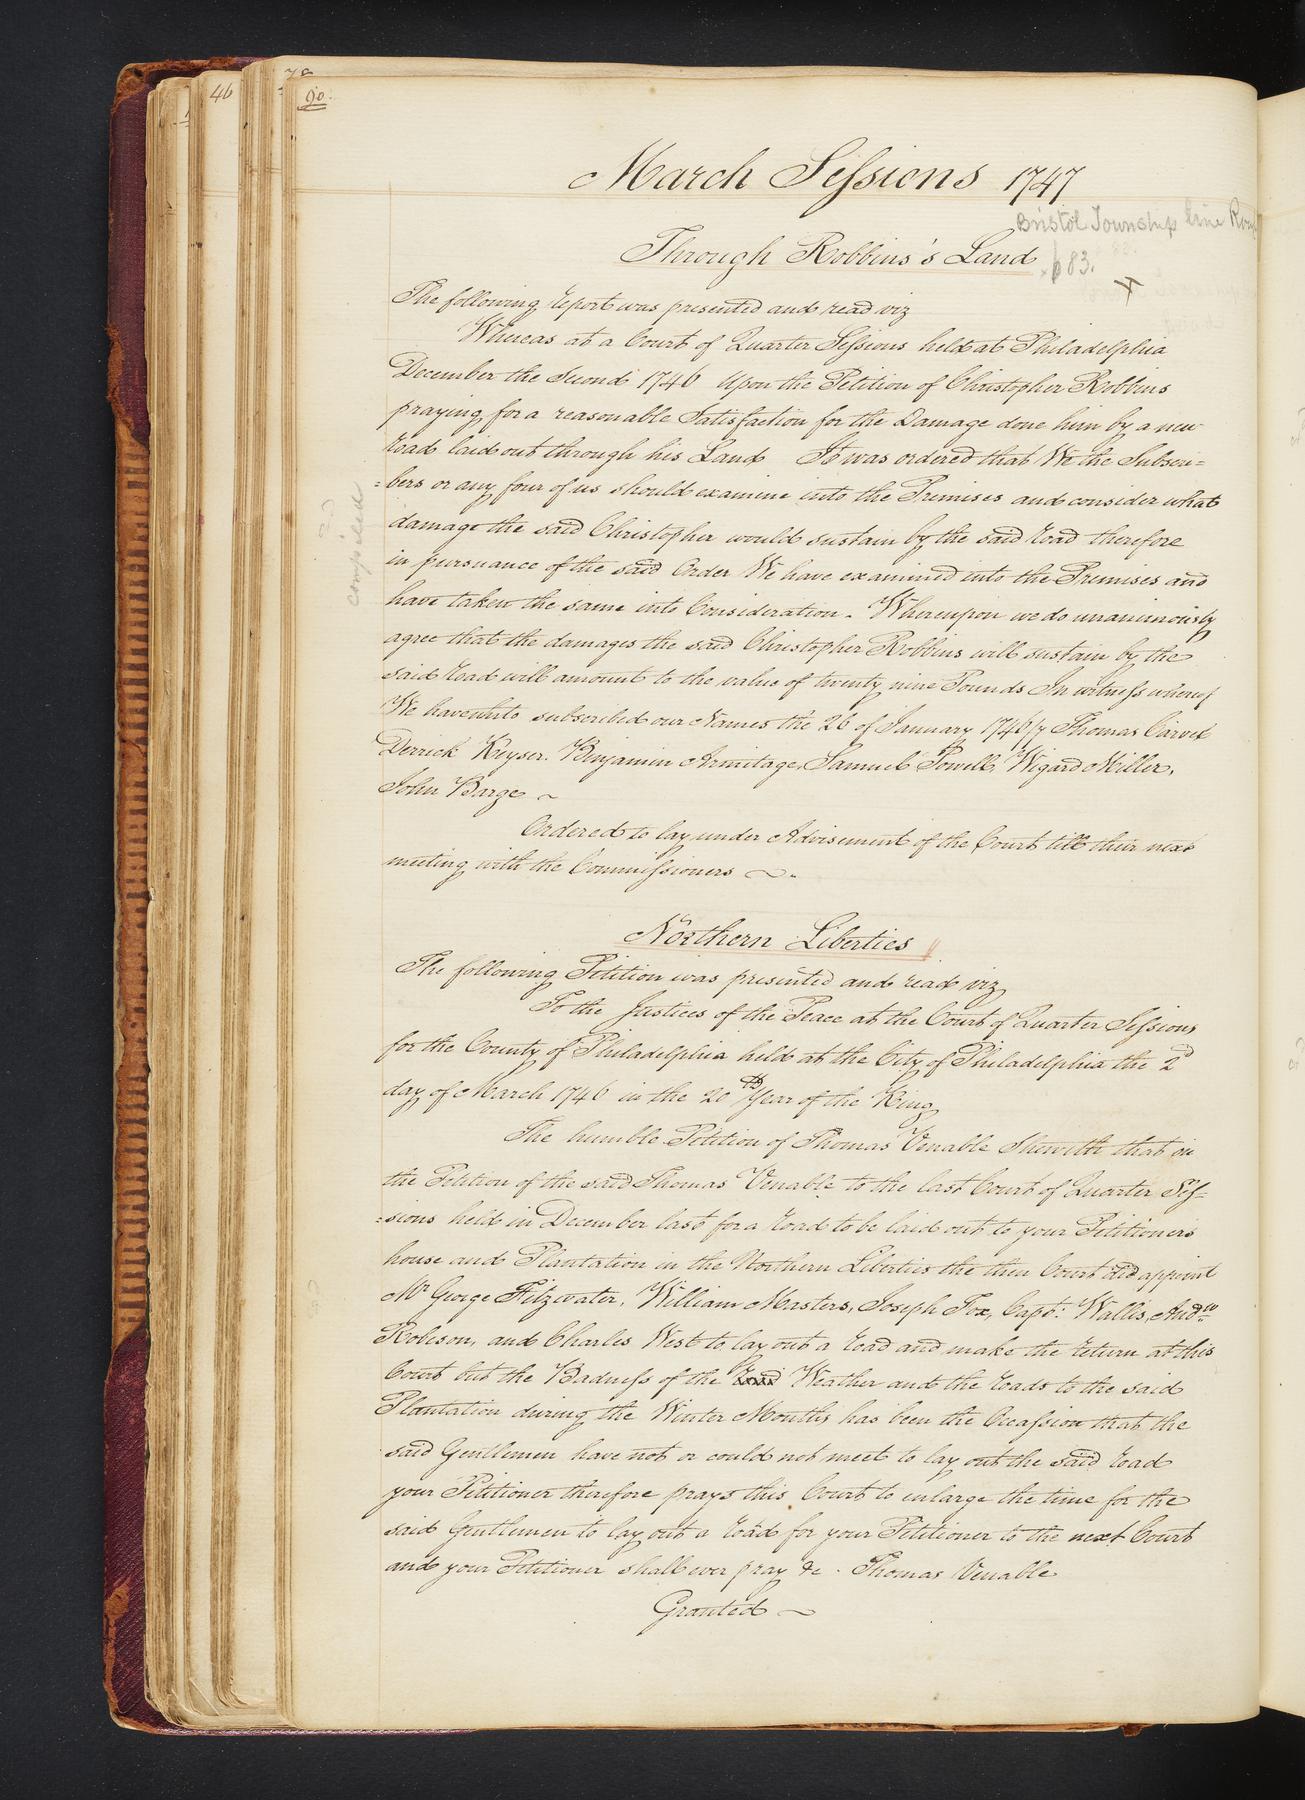 46
78
90.
March Sessions 1747
Bristol Township line Road
Through Robbins's Land
683.
x
The following report was presented and read viz
Whereas at a Court of Quarter Sessions held at Philadelphia
December the Second 1746 Upon the Petition of Christopher Robbins
praying for a reasonable Satisfaction for the Damage done him by a new
road laid out through his Land It was ordered that We the Subscri=
=bers or any four of us should examine into the Premises and consider what
damage the said Christopher would sustain by the said road therefore
in pursuance of the said Order We have examined into the Premises and
have taken the same into Consideration. Whereupon we do unanimously
agree that the damages the said Christopher Robbins will sustain by the
said road will amount to the value of twenty nine Pounds In witness whereof
We haveunto subscribed our Names the 26 of January 1746/7 Thomas Carvel
Derrick Keyser. Benjamin Armitage, Samuel Powell, Wigard Miller,
John Barge ~
Ordered to lay under Advisement of the Court till their next
meeting with the Commissioners ~.
compiled
Northern Liberties
The following Petition was presented and read viz
To the Justices of the Peace at the Court of Quarter Sessions
for the County of Philadelphia held at the City of Philadelphia the 2d
day of March 1746 in the 20th Year of the King
The humble Petition of Thomas Venable Sheweth that on
the Petition of the said Thomas Venable to the last Court of Quarter Ses=
=sions held in December last for a road to be laid out to your Petitioners
house and Plantation in the Northern Liberties the then Court did appoint
Mr George Fitzwater, William Masters, Joseph Fox, Capt. Wallis, Andrw
Robeson, and Charles West to lay out a road and make the return at this
Court but the Badness of the road Weather and the roads to the said
Plantation during the Winter Months has been the Occassion that the
said Gentlemen have not or could not meet to lay out the said road
your Petitioner therefore prays this Court to enlarge the time for the
said Gentlemen to lay out a road for your Petitioner to the next Court
and your Petitioner shall ever pray &c. Thomas Venable
Granted ~